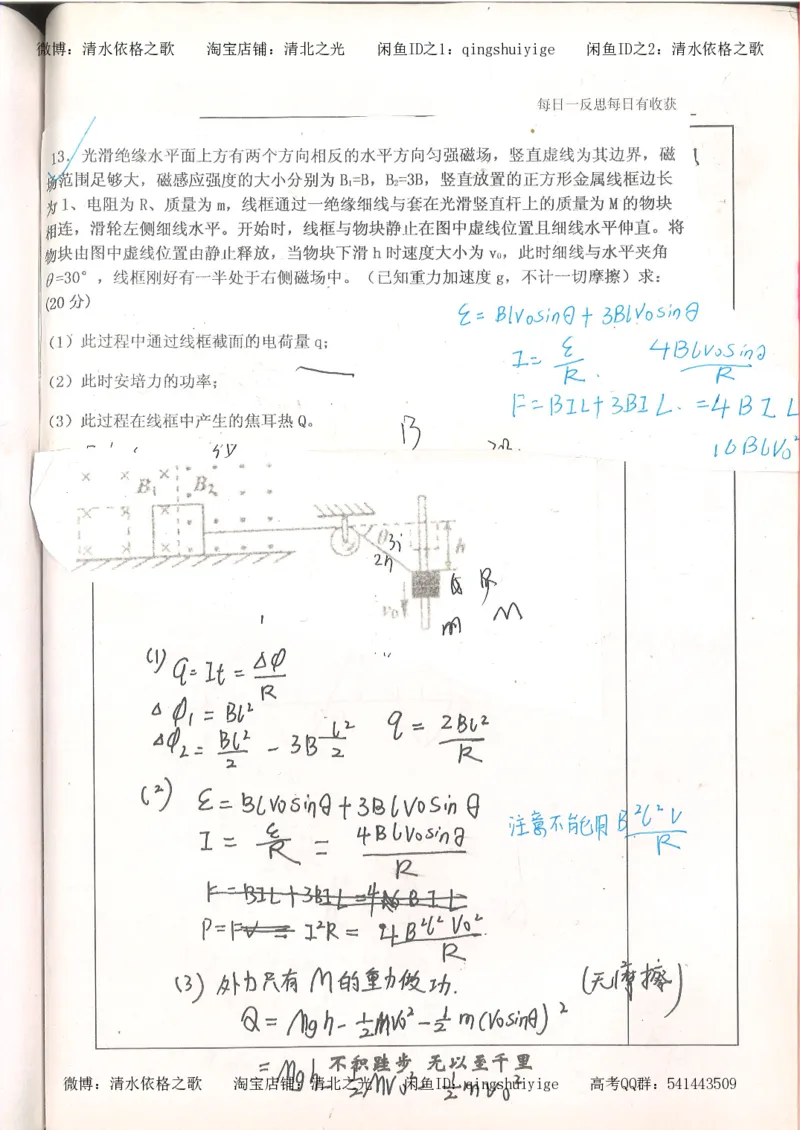 微博：清水依格之歌 淘宝店铺：清北之光 闲鱼ID之1：qingshuiyige 闲鱼ID之2：清水依格之歌
每日一反思每日有收获
13. 光滑绝缘水平面上方有两个方向相反的水平方向匀强磁场，竖直虚线为其边界，磁
场范围足够大，磁感应强度的大小分别为B₁=B，B₂=3B，竖直放置的正方形金属线框边长
为l、电阻为R、质量为m，线框通过一绝缘细线与套在光滑竖直杆上的质量为M的物块
相连，滑轮左侧细线水平。开始时，线框与物块静止在图中虚线位置且细线水平伸直。将
物块由图中虚线位置由静止释放，当物块下滑h时速度大小为v₀，此时细线与水平夹角
θ=30°，线框刚好有一半处于右侧磁场中。（已知重力加速度g，不计一切摩擦）求：
(20分)
ε=Blv₀sinθ+3Blv₀sinθ
（1）此过程中通过线框截面的电荷量q；
I=ε/R. 4Blv₀sinθ/R
（2）此时安培力的功率；
F=BIL+3BIL.=4BIL
（3）此过程在线框中产生的焦耳热Q。
B
16Blv₀²
B₁ B₂
θ
h
2h
v₀
m M
(1) q=It=ΔΦ/R
ΔΦ₁=Bl²
ΔΦ₂=Bl²/2-3Bl²/2 q=2Bl²/R
(2) ε=Blv₀sinθ+3Blv₀sinθ
I=ε/R=4Blv₀sinθ/R
注意不能用B²l²v/R
F=BIL+3BIL=4BIL
P=Fv=I²R=4B²l²v₀²/R
(3) 外力只有M的重力做功. (无摩擦)
Q=Mgh-½Mv₀²-½m(v₀sinθ)²
不积跬步，无以至千里
微博：清水依格之歌 淘宝店铺：清北之光 闲鱼ID：qingshuiyige 高考QQ群：541443509